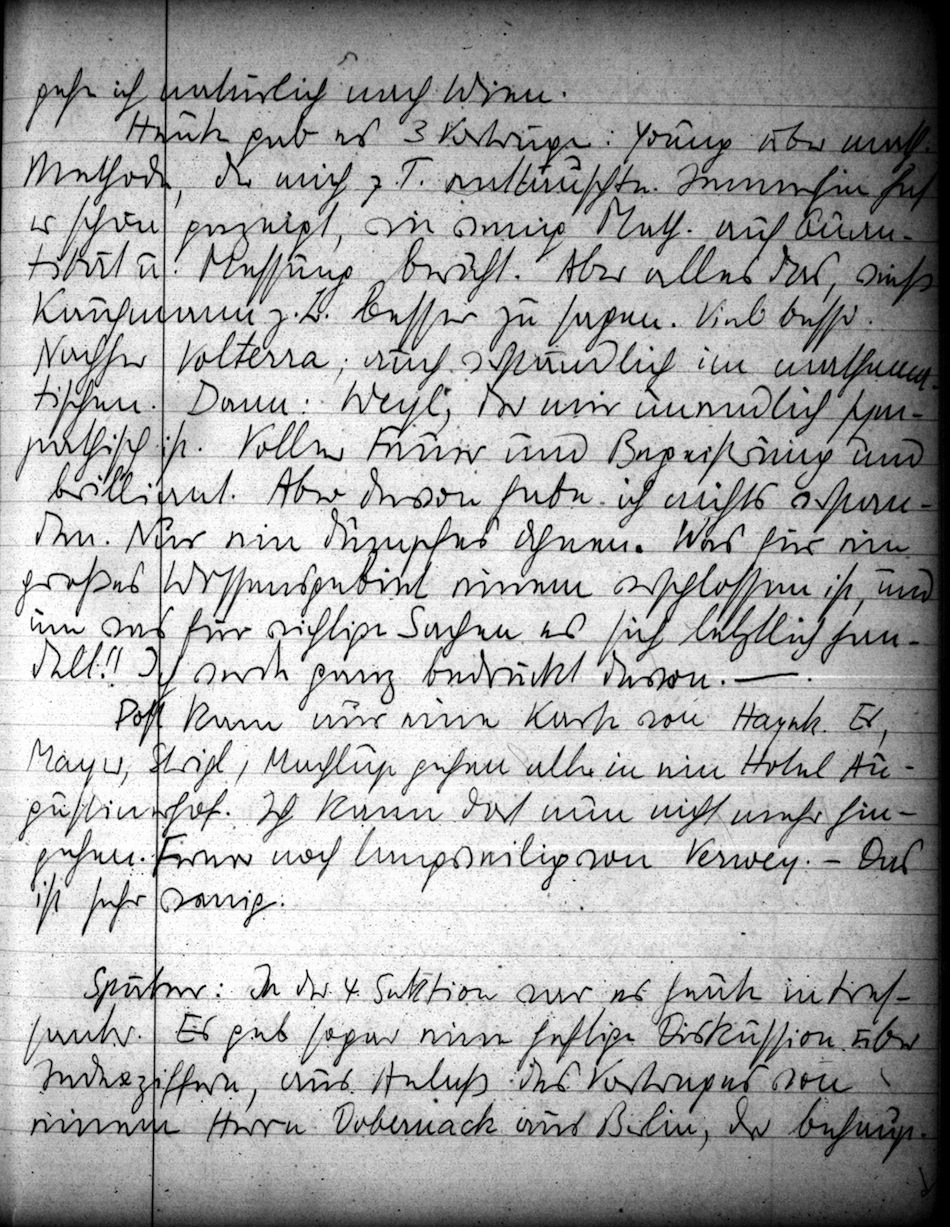 gehe ich natürlich nach Wien.
Heute gab es 3 Vorträge: Young über math.
Methode, der mich z. T. enttäuschte. Immerhin hat
er schön gezeigt, wie wenig Math. auf Quan-
tität u. Messung beruht. Aber alles das, weiß
Kaufmann z. B. besser zu sagen. Viel besser.
Nachher Volterra; auch verständlich im mathema-
tischen. Dann: Weyl, der mir unendlich sym-
pathisch ist. Voller Feuer und Begeisterung und
brilliant. Aber davon habe ich nichts verstan-
den. Nur ein dumpfes Ahnen. Was für ein
großes Wissensgebiet einem verschlossen ist, und
um was für wichtige Sachen es sich letztlich han-
delt!! Ich werde ganz bedrückt davon. —
Post kam nur eine Karte von Hayek. Er,
Mayer, Strigl, Machlup gehen alle in ein Hotel Au-
gustinerhof. Ich kann dort nun nicht mehr hin-
gehen. Ferner noch langweilig von Verwey. – Das
ist sehr wenig.
Später: In der 4. Sektion war es heute interes-
santer. Es gab sogar eine heftige Diskussion über
Indexziffern, aus Anlaß des Vortrages von
einem Herrn Dobernack aus Berlin, der behaup-